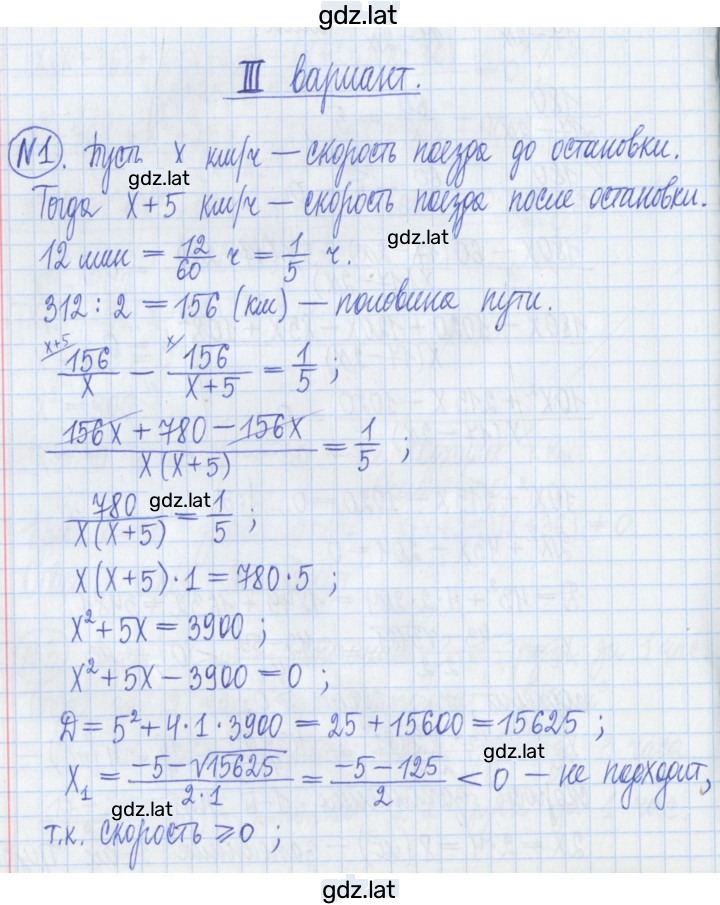 gdz.lat
III вариант.
№1. Пусть x км/ч — скорость поезда до остановки.
gdz.lat
Тогда x+5 км/ч — скорость поезда после остановки.
gdz.lat
12 мин = 12/60 ч = 1/5 ч.
312 : 2 = 156 (км) — половина пути.
x+5/ 156/x − x/ 156/(x+5) = 1/5 ;
(156x + 780 − 156x)/(x(x+5)) = 1/5 ;
gdz.lat
780/(x(x+5)) = 1/5 ;
x(x+5)·1 = 780·5 ;
x² + 5x = 3900 ;
x² + 5x − 3900 = 0 ;
Д = 5² + 4·1·3900 = 25 + 15600 = 15625 ;
gdz.lat
x₁ = (−5 − √15625)/(2·1) = (−5 − 125)/2 < 0 — не подходит,
gdz.lat
т.к. скорость ⩾ 0 ;
gdz.lat